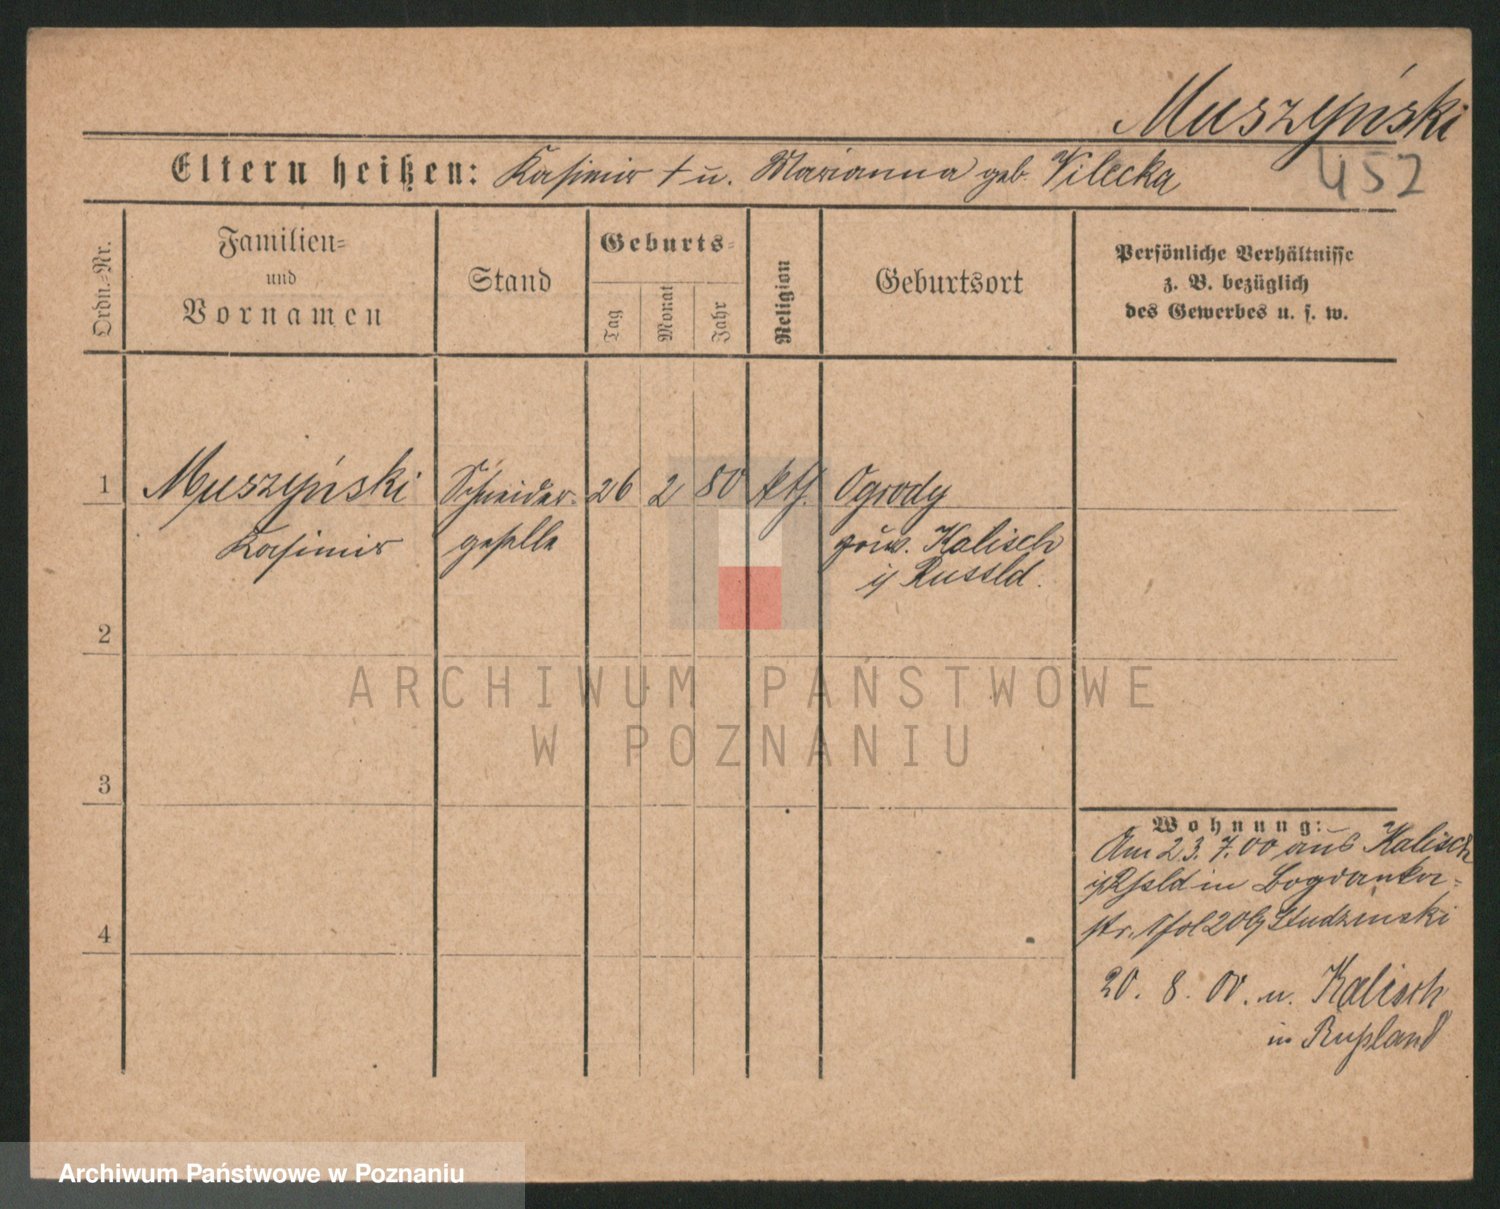 Muszyński
452
Eltern heißen: Kasimir † u. Marianna geb. Vilecka
Ordn.-Nr.
Familien-
und
Vornamen
Stand
Geburts-
Tag
Monat
Jahr
Religion
Geburtsort
Persönliche Verhältnisse
z. B. bezüglich
des Gewerbes u. s. w.
1 Muszyński Schneider- 26 2 80 kth. Ogrody
Kasimir geselle gouv. Kalisch
i/ Russld.
2
ARCHIWUM PAŃSTWOWE
W POZNANIU
3
Wohnung:
Am 23. 7. 00 aus Kalisch
i/Rssld in Bogdanka-
str. 1 20 b/ Studzinski
4
20. 8. 00. n. Kalisch
in Rußland
Archiwum Państwowe w Poznaniu